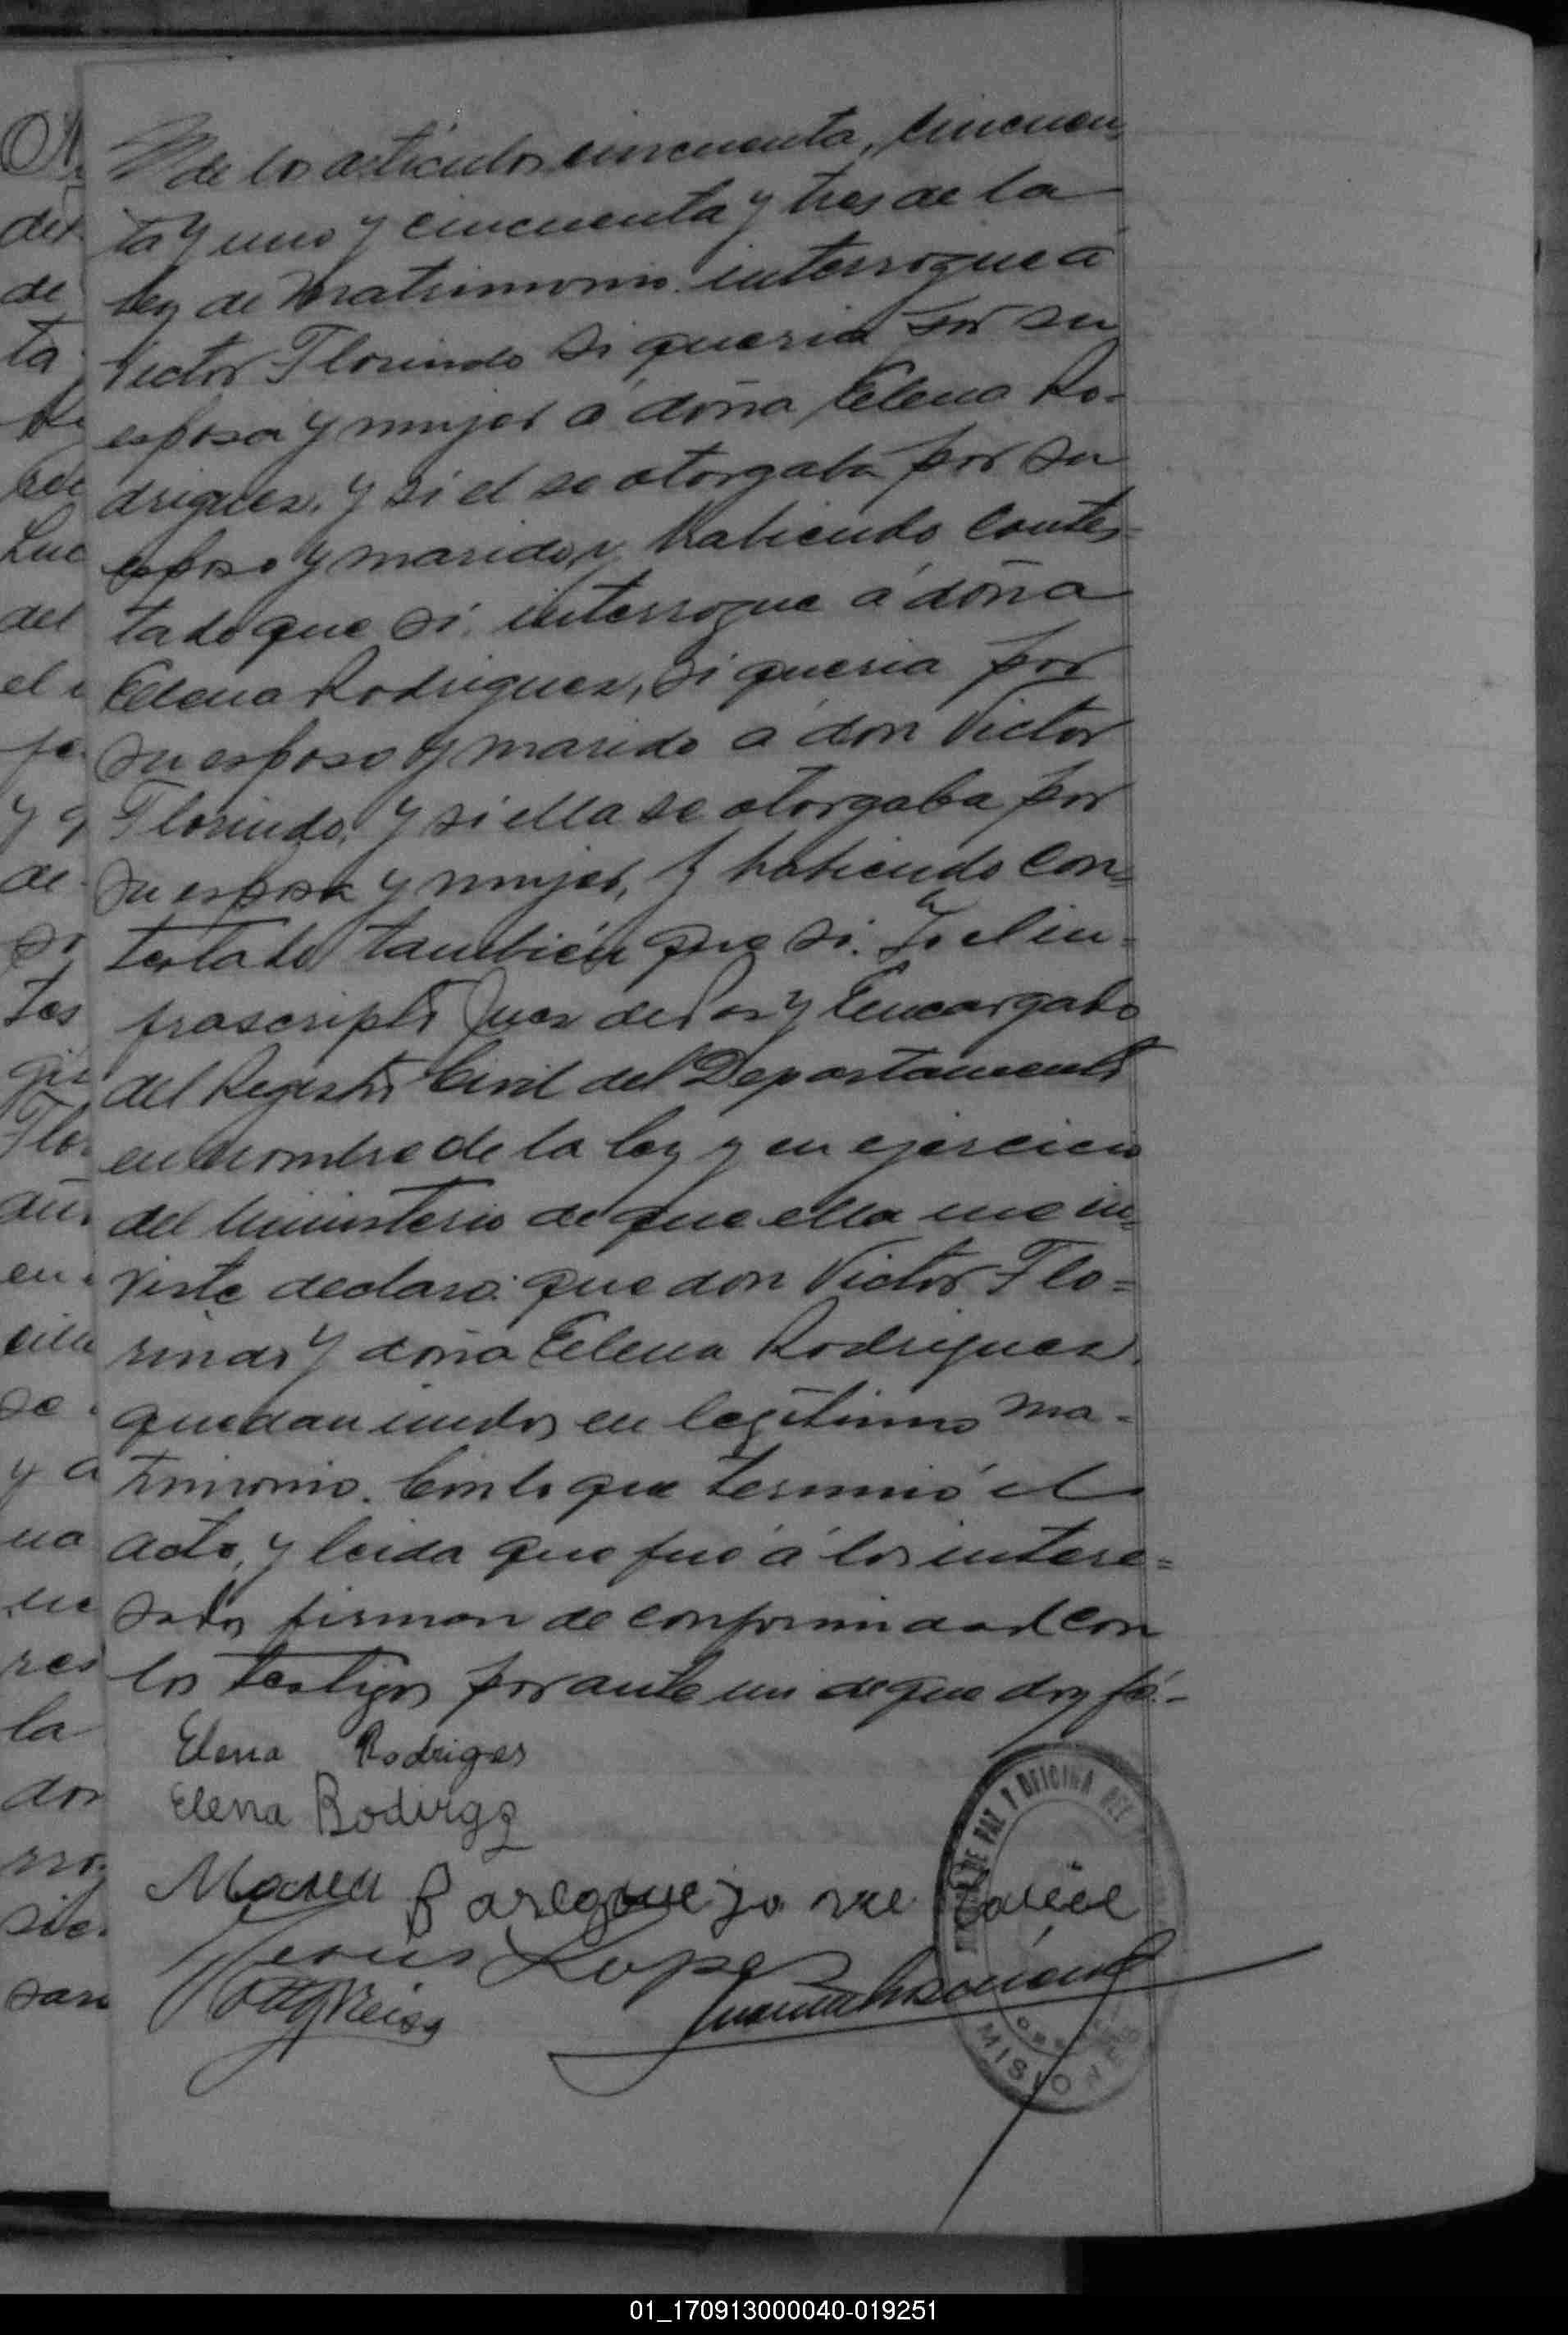 de los artículos cincuenta, cincuen
ta y uno y cincuenta y tres de la
ley de Matrimonio interrogue a
Victor Florindo si queria por su
esposa y mujer a doña Elena Ro-
driguez, y si el se otorgaba por su
esposo y marido, y habiendo contes-
tado que si, interrogue a doña
Elena Rodriguez, si queria por
su esposo y marido a don Victor
Florindo, y si ella se otorgaba por
su esposa y mujer, y habiendo con=
testado también que si. Yo el in-
frascripto Juez de Paz y Encargado
del Registro Civil del Departamento
en nombre de la ley y en ejercicio
del ministerio de que ella me in=
viste declaro: que don Victor Flo=
rindo y doña Elena Rodriguez,
quedan unidos en legítimo ma-
trimonio. Con lo que terminó el
acto, y leida que fué á los intere=
sados firman de conformidad con
los testigos por ante mi de que doy fé.-
Elena Rodriges
Elena
Jesus Lopez
DE PAZ Y OFICINA DEL
MISIONES
01_170913000040-019251